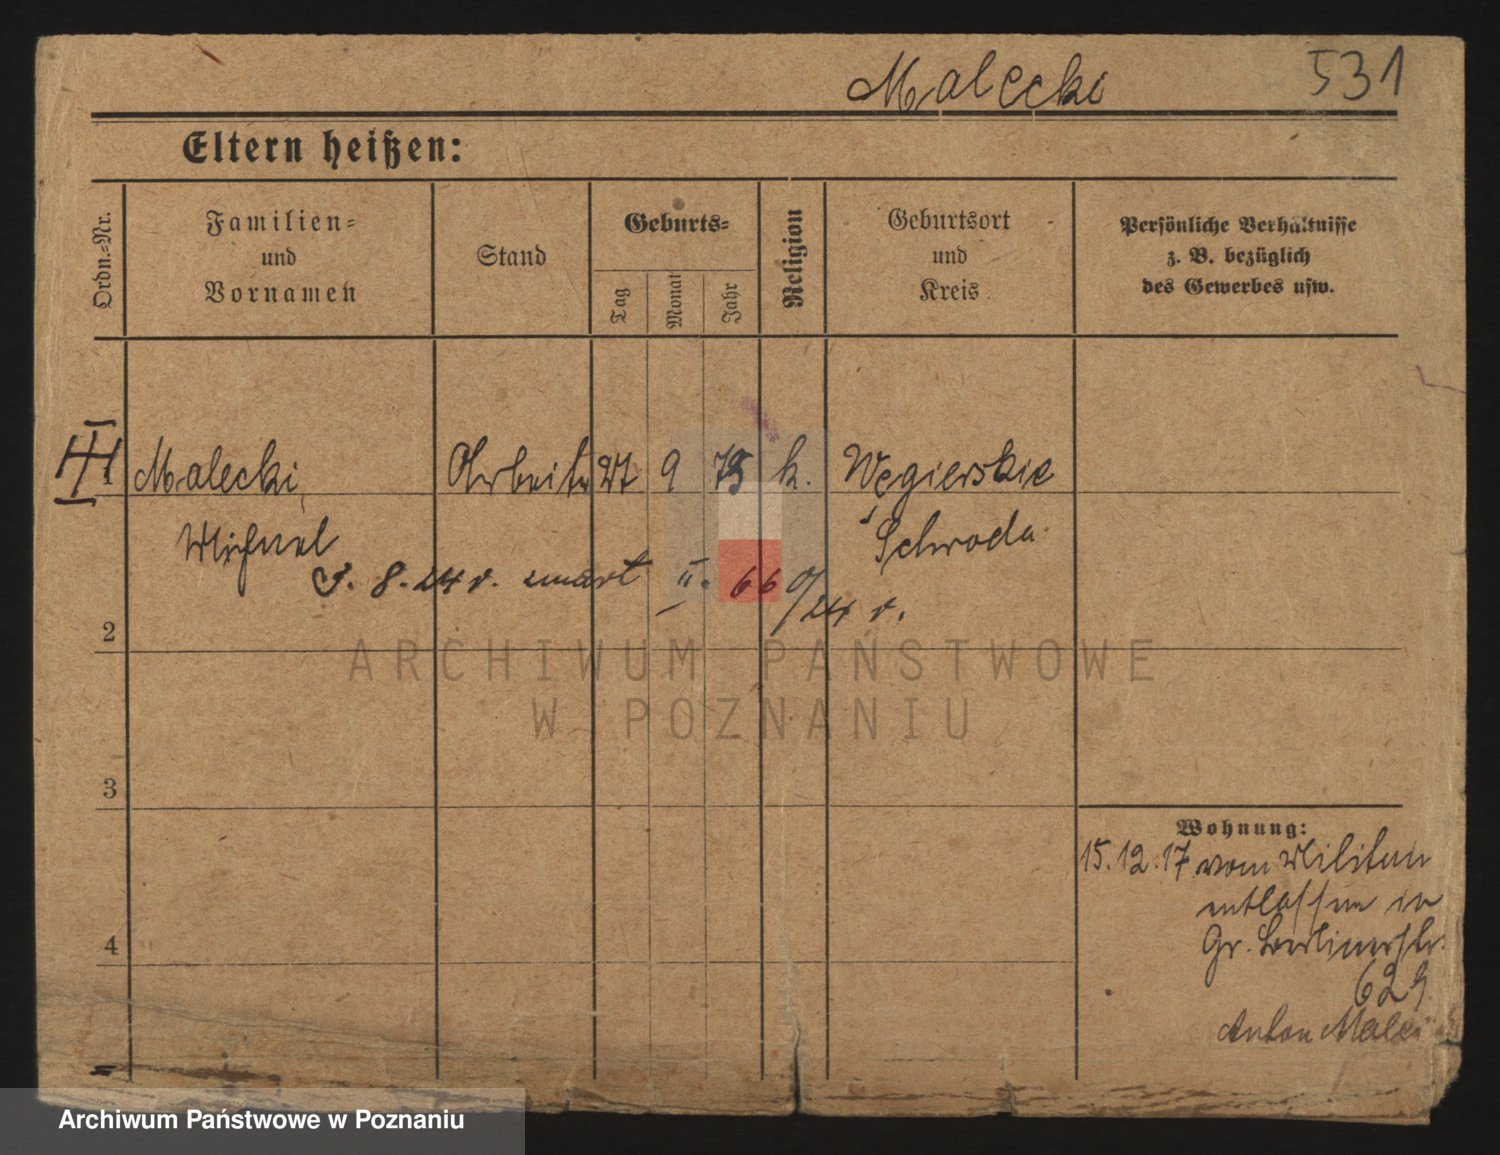 Malecki 531
Eltern heißen:
Ordn.-Nr.
Familien-
und
Vornamen
Stand
Geburts-
Tag
Monat
Jahr
Religion
Geburtsort
und
Kreis
Persönliche Verhältnisse
z. B. bezüglich
des Gewerbes usw.
Malecki, Arbeiter 27 9 75 k. Węgierskie
Michael Schroda
8. 24 r. zmarł II. 660/24 r.
2
ARCHIWUM PAŃSTWOWE
W POZNANIU
3
Wohnung:
15.12.17 vom Militär
entlassen in
Gr. Berlinerstr.
629
Anton Malecki
4
Archiwum Państwowe w Poznaniu